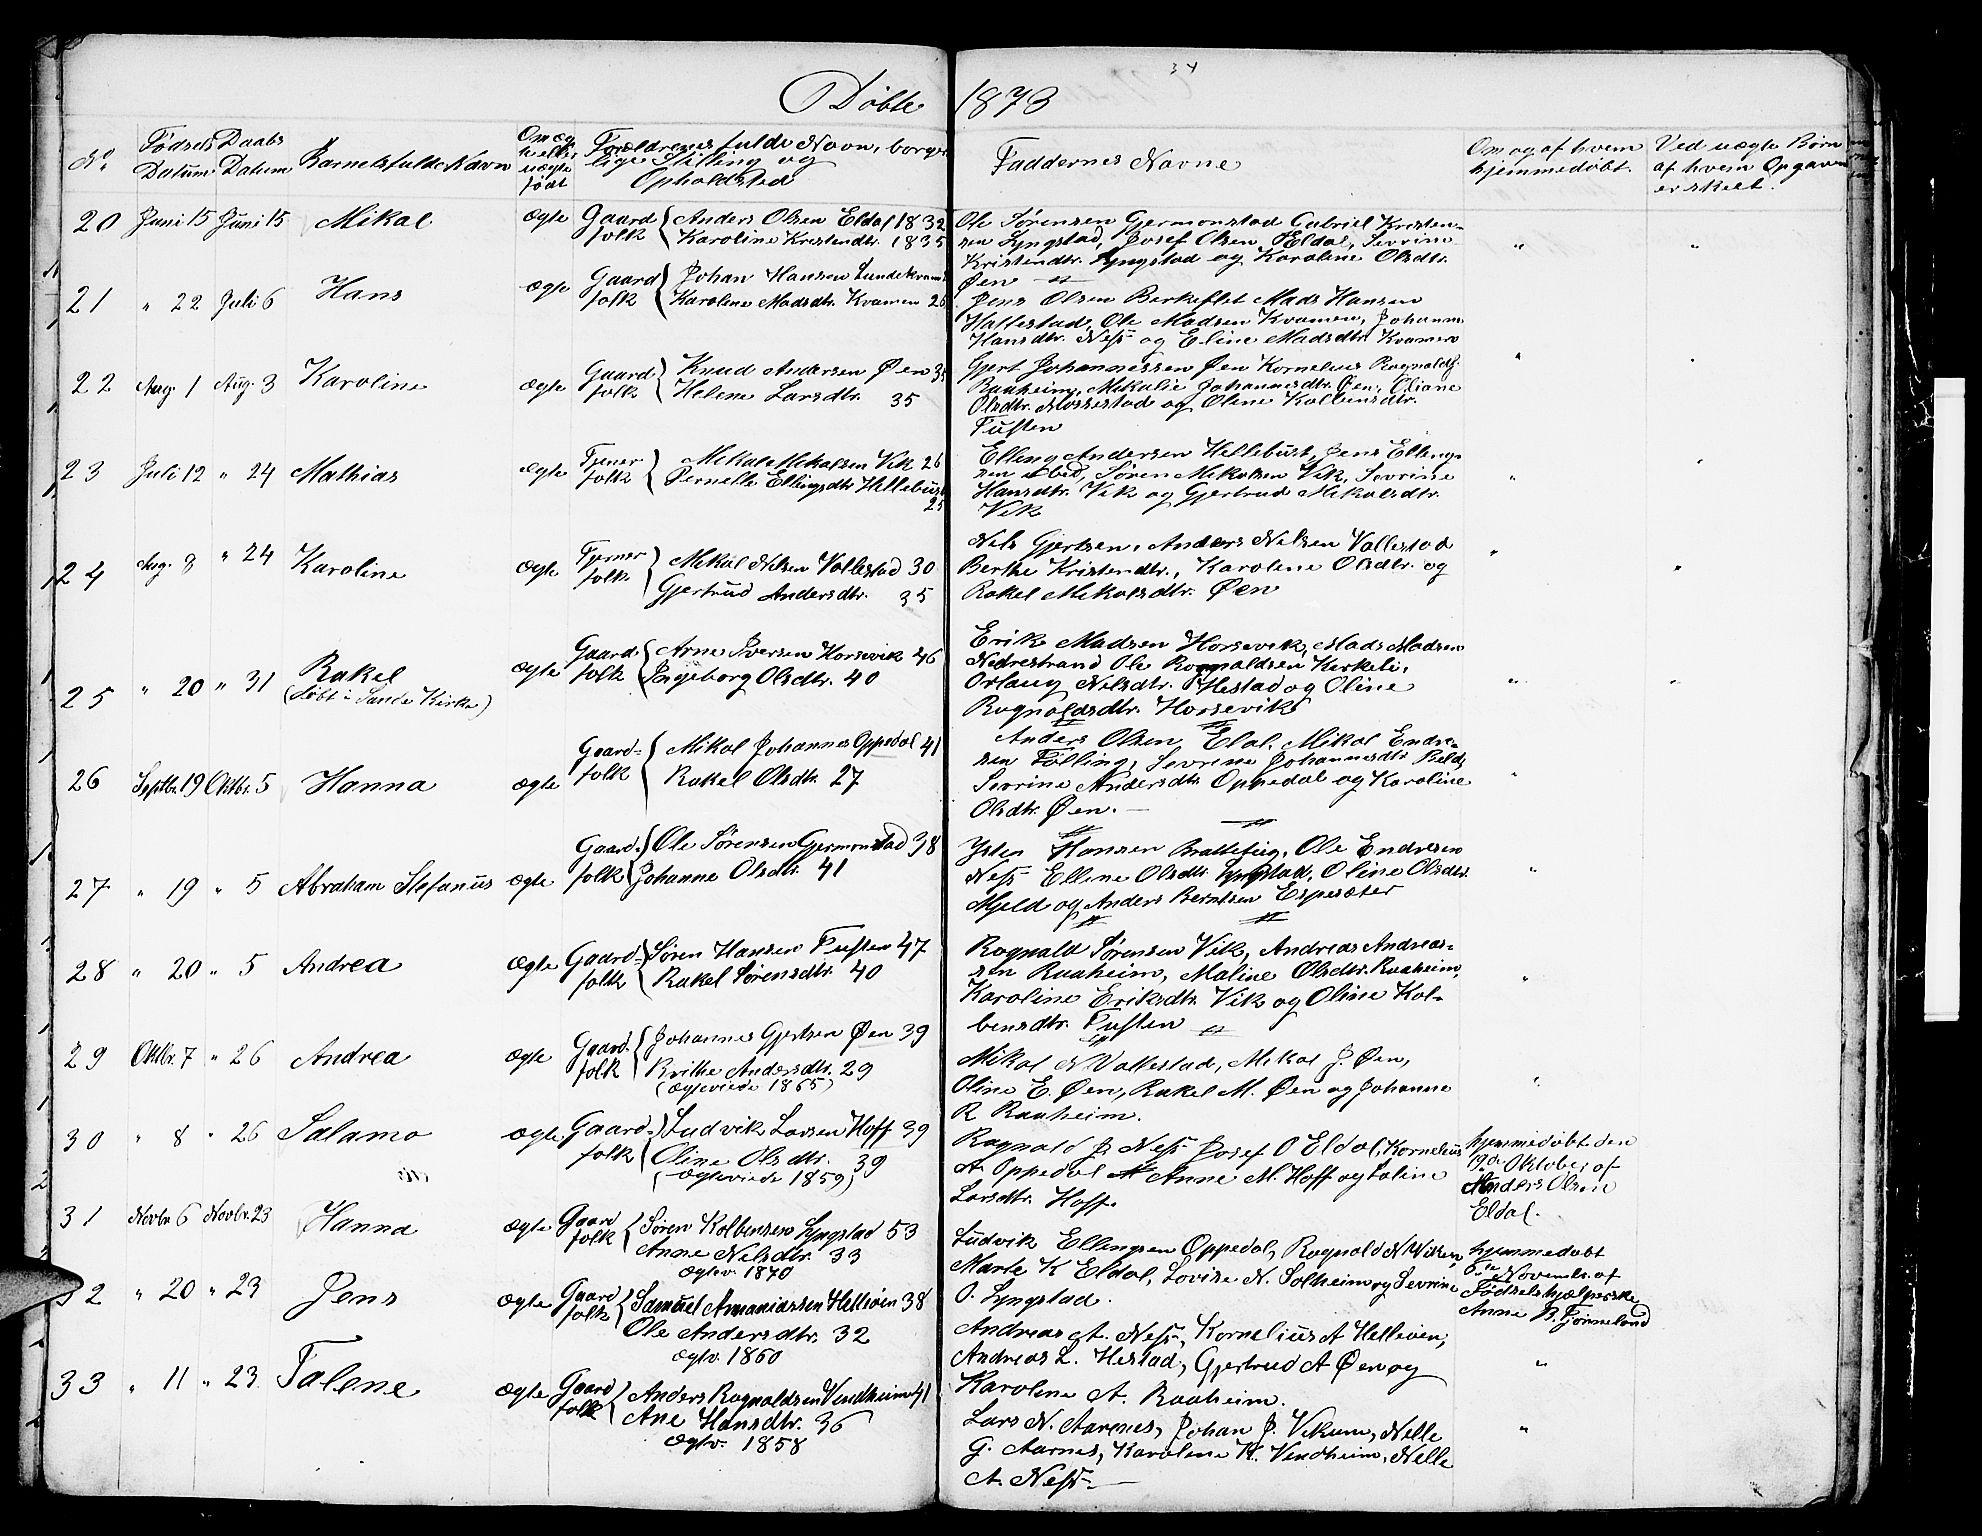 34
Døbte 1873
No Fødsels Datum Daabs Datum Barnets fulde Navn Om ægte eller uægte født Forældrenes fulde Navn, borgerlige Stilling og Opholdsted Faddernes Navne Om og af hvem hjemmedøbt. Ved uægte Børn af hvem Opgaven er skeet.
20 Juni 15 Juni 15 Mikal ægte Gaardfolk { Anders Olsen Eldal 1832
Karoline Kristendtr. 1835
Ole Sørensen Gjermonstad Gabriel Kristen-
sen Lyngstad, Josef Olsen Eldal, Sevrine
Kristendtr. Lyngstad og Karoline Olsdtr.
Øen
21 " 22 Juli 6 Hans ægte Gaardfolk { Johan Hansen
Karoline Madsdtr. Kvamen 26
Jens Olsen Berkeflet Mads Hansen
Hallestad, Ole Madsen Kvamen, Johanne
Hansdtr. Ness og Eline Madsdtr. Kvamen
22 Aug. 1 Aug. 3 Karoline ægte Gaardfolk { Knud Andersen Øen 35
Helene Larsdtr. 35
Gjert Johannessen Øen Kornelius Rognalds.
Raaheim, Mikalie Johannesdtr. Øen, Eliane
Olsdtr. og Oline Kolbensdtr.
Fussen
23 Juli 12 " 24 Mathias ægte Tjenerfolk { Mikal Mikalsen Vik 26
Pernelle Ellingsdtr. Hellebust
25
Elling Andersen Hellebust, Jens Elling-
sen, Søren Mikalsen Vik, Sevrine
Hansdtr. Vik og Gjertrud Mikalsdtr.
Vik
24 Aug. 8 " 24 Karoline ægte Tjenerfolk } Mikal Nilsen Vallestad 30
Gjertrud Andersdtr. 35
Nils Gjertsen, Anders Nilsen Vallestad
Berthe Kristendtr., Karolene Olsdtr. og
Rakel Mikalsdtr. Øen
25 " 20 " 31 Rakel
(Døbt i Sande Kirke)
ægte Gaardfolk { Arne Iversen Horsevik 46
Ingeborg Olsdtr. 40
Erik Madsen Horsevik, Mads Madsen
Nedrestrand Ole Rognaldsen Kirkeli,
Orlaug Nilsdtr. Hestad og Oline
Rognaldsdtr. Horsevik
26 Septbr. 19 Oktbr. 5 Hanna ægte Gaard-folk { Mikal Johannes Oppedal 41
Rakel Olsdtr. 27
Anders Olsen Elal. Mikal Endre-
sen Følling, Sevrine Johannesdtr.
Sevrine Andersdtr. Oppedal og Karoline
Olsdtr. Øen. —
27 " 19 " 5 Abraham Stefanus ægte Gaard-folk { Ole Sørensen Gjermonstad 38
Johanne Olsdtr. 41
Hansen, Ole Endresen
Ness Elline Olsdtr. Lyngstad, Oline Olsdtr.
Mjeld og Anders Berntsen Espesæter
28 " 20 " 5 Andrea ægte Gaard-folk { Søren Hansen Fussen 47
Rakel Sørensdtr. 40
Rognald Sørensen Vik, Andreas Andreas-
sen Raaheim, Maline Olsdtr. Raaheim,
Karoline Eriksdtr. Vik og Oline Kol-
bensdtr. Fussen
29 Oktbr. 7 " 26 Andrea ægte Gaardfolk { Johannes Gjertsen Øen 39
Brithe Andersdtr. 29
(ægteviede 1865)
Mikal N Vallestad, Mikal J. Øen,
Oline E. Øen, Rakel M. Øen og Johanne
R Raaheim.
30 " 8 " 26 Salamo ægte Gaard-folk } Ludvik Larsen Hoff 39
Oline Olsdtr. 39
(ægteviede 1859)
Rognald J. Ness Josef O Eldal, Kornelius
A. Oppedal Anne M. Hoff og Taline
Larsdtr. Hoff.
hjemmedøbt den
19de Oktober af
Anders Olsen
Eldal.
31 Novbr. 6 Novbr. 23 Hanna ægte Gaardfolk { Søren Kolbensen Lyngstad 53
Anne Nilsdtr. 33
ægtev. 1870
Ludvik Ellingsen Oppedal, Rognald N Viken,
Marte K Eldal, Lovise N. Solheim og Sevrine
O. Lyngstad.
hjemmedøbt
6te Novembr. af
Fødselshjælperske
Anne B. Tjønneland
32 " 20 " 23 Jens ægte Gaardfolk { Samuel Amaniassen Helleøen 38
Ole Andersdtr. 32
ægtv. 1860
Andreas A. Ness, Kornelius A Helleøen,
Andreas L. Hestad, Gjertrud A Øen og
Karoline A. Raaheim.
33 " 11 " 23. Talene ægte Gaardfolk { Anders Rognaldsen Vendheim 41
Ane Hansdtr. 36
ægtv. 1858
Lars N. Aarnes, Johan J. Vikum, Nille
G. Aarnes, Karolene H. Vendheim, Nille
A. Ness —